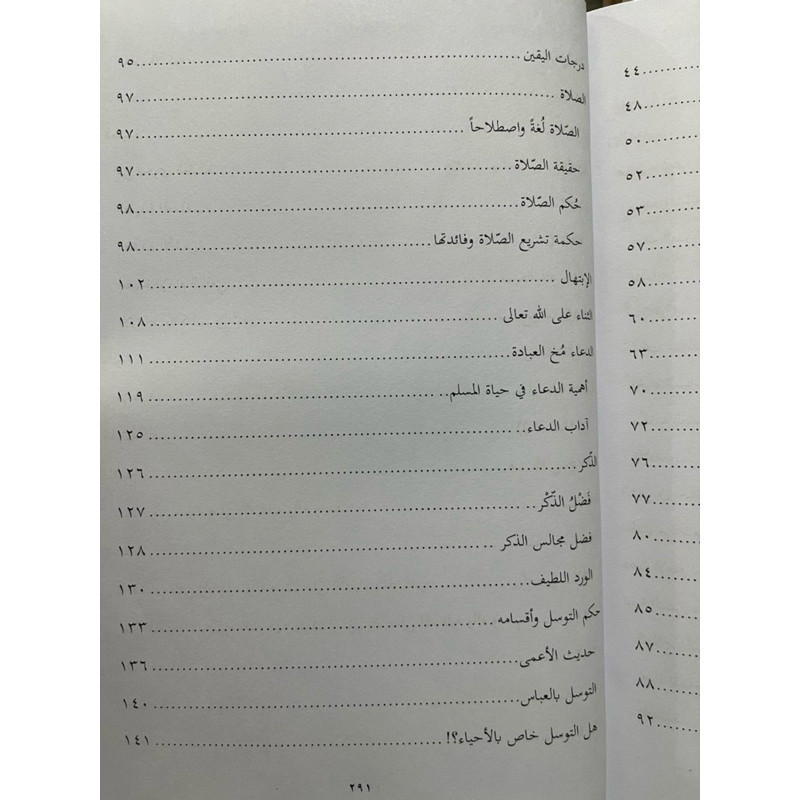 ٤٤
٤٨
٥٠
٥٢
٥٣
٥٧
٥٨
٦٠
٦٣
٧٠
٧٢
٧٦
٧٧
٨٠
٨٤
٨٥
٨٧
٨٨
٩٢
درجات اليقين ٩٥
الصلاة ٩٧
الصّلاة لُغةً واصطلاحاً ٩٧
حقيقة الصّلاة ٩٧
حُكم الصّلاة ٩٨
حكمة تشريع الصّلاة وفائدتها ٩٨
الإبتهال ١٠٢
الثناء على الله تعالى ١٠٨
الدعاء مُخ العبادة ١١١
أهمية الدعاء في حياة المسلم ١١٩
آداب الدعاء ١٢٥
الذّكر ١٢٦
فَضْلُ الذّكْر ١٢٧
فضل مجالس الذكر ١٢٨
الورد اللطيف ١٣٠
حكم التوسل وأقسامه ١٣٣
حديث الأعمى ١٣٦
التوسل بالعباس ١٤٠
هل التوسل خاص بالأحياء؟! ١٤١
٢٩١